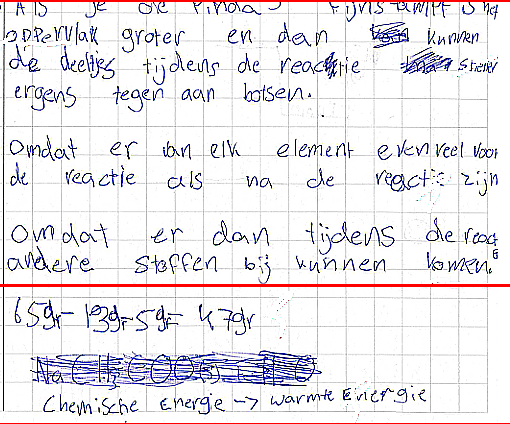 Als je de Pinda's fijnstampt is het
oppervlak groter en dan kunnen
de deeltjes tijdens de reactie sneller
ergens tegen aan botsen.
Omdat er van elk element evenveel voor
de reactie als na de reactie zijn
Omdat er dan tijdens de react
andere stoffen bij kunnen komen.
65gr - 13gr - 5gr = 47gr
Chemische Energie -> warmte Energie